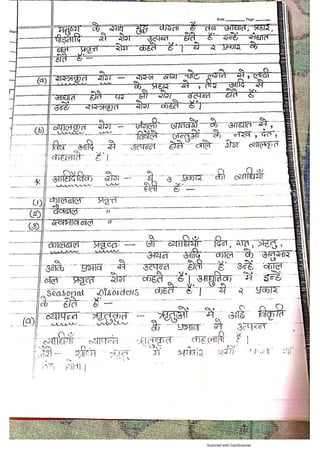 Date Page
मनुष्य के साथ युद्ध करता है तब आघात, प्रहार,
पीडनादि से रोग उत्पन्न होते हैं उन्हें संघात
बल प्रवृत्त रोग कहते हैं। ये २ प्रकार के
होते हैं —
(a) शस्त्रकृत रोग — शस्त्र बाधा चोट लगने से, लाठी
के प्रहार से, तीर आदि से
आघात होने पर जो रोग उत्पन्न होते हैं
उन्हें शस्त्रकृत रोग कहते हैं।
(b) व्यालकृत रोग — जंगली जानवरों के आघात से,
विषैले जन्तुओं के नख, दंत,
विष आदि से उत्पन्न होने वाले रोग व्यालकृत
कहलाते हैं।
* आधिदैविक रोग — ये ३ प्रकार की व्याधियाँ
होती हैं —
(१) कालबल प्रवृत्त
(२) दैवबल "
(३) स्वभावबल "
कालबल प्रवृत्त :— जो व्याधियाँ दिन, रात, ऋतु,
अयन आदि काल के अनुसार
उनके प्रभाव से उत्पन्न होती हैं उन्हें काल
बल प्रवृत्त रोग कहते हैं। आधुनिक में इन्हें
Seasonal Disorders कहते हैं। ये २ प्रकार
के होते हैं —
(a) व्यापन्न ऋतुकृत — ऋतुओं में आई विकृति
के प्रभाव से उत्पन्न
व्याधियाँ व्यापन्न ऋतुकृत कहलाती हैं।
जैसे — ग्रीष्म ऋतु में भयंकर गर्मी
Scanned with CamScanner